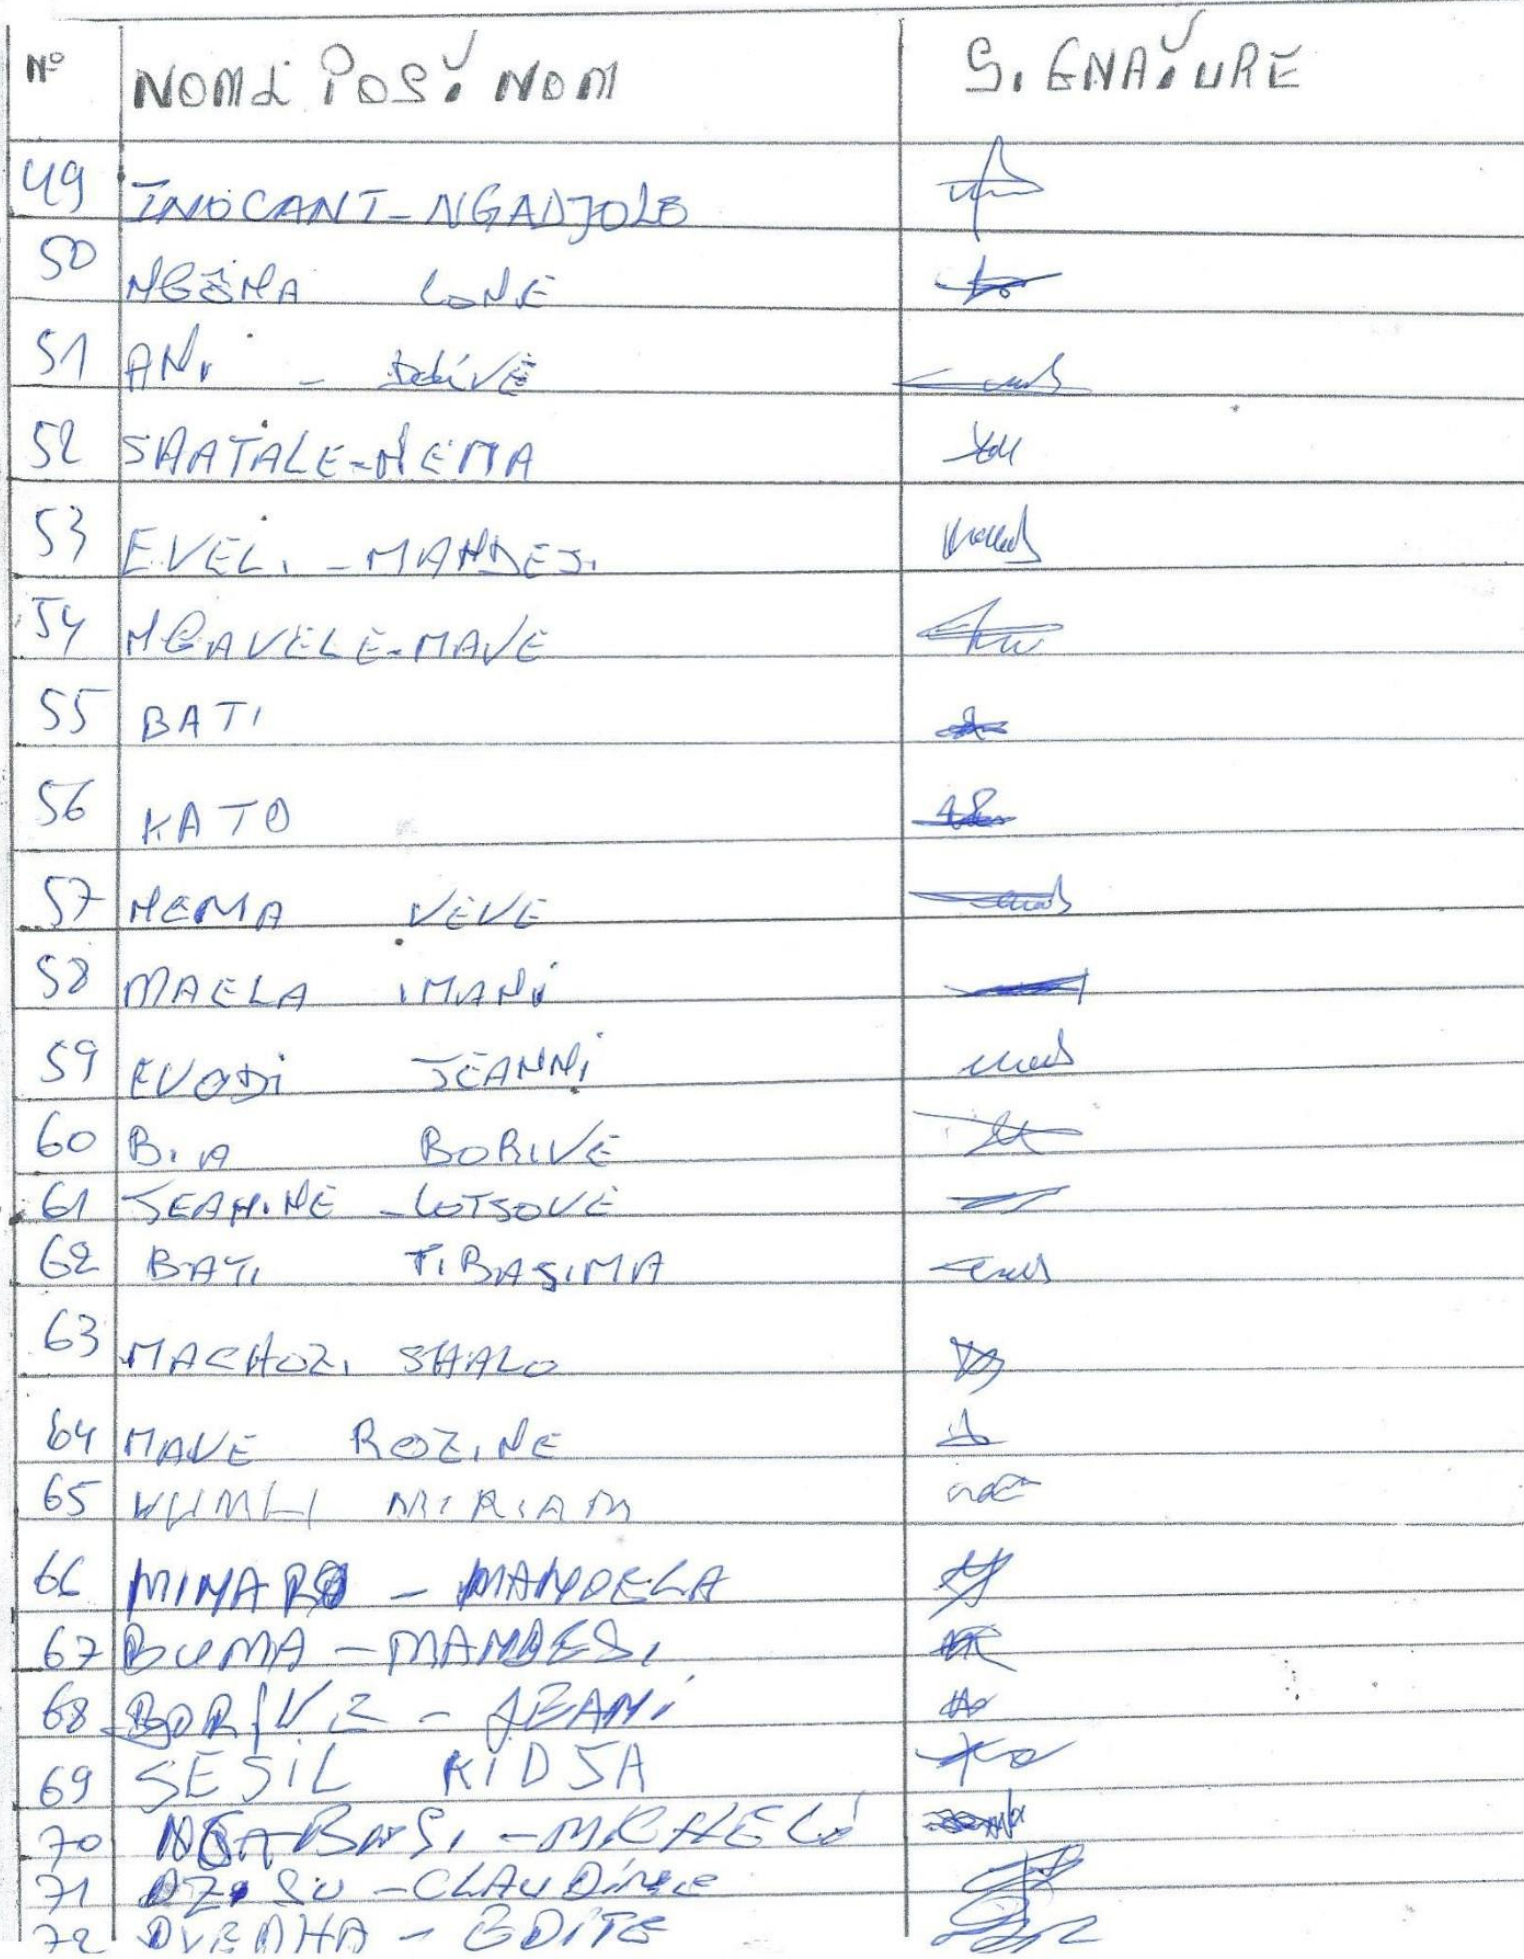 N° NOM & POST. NOM SIGNATURE
49 INOCANT - NGADJOLO
50 NGĒMA LONE
51 ANi -
52 SAATALE - NEMA
53 EVELi - MANDESi
54 NGAVELE - MAVE
55 BATi
56 KATO
57 NEMA VEVE
58 MAELA iMANi
59 EVODi JEANNi
60 BiA BORiVE
61 JEANiNE - LOTSOVE
62 BATi TiBASiMA
63 MACHOZi SHALO
64 MAVE ROZiNE
65 MIRIAM
66 MINARO - MANDELA
67 BUMA - MANDESi
68 BORIVE - JEANi
69 SESIL KIDSA
70 NGABUSi - MICHELi
71 DZiSU - CLAUDINE
72 - EDITE